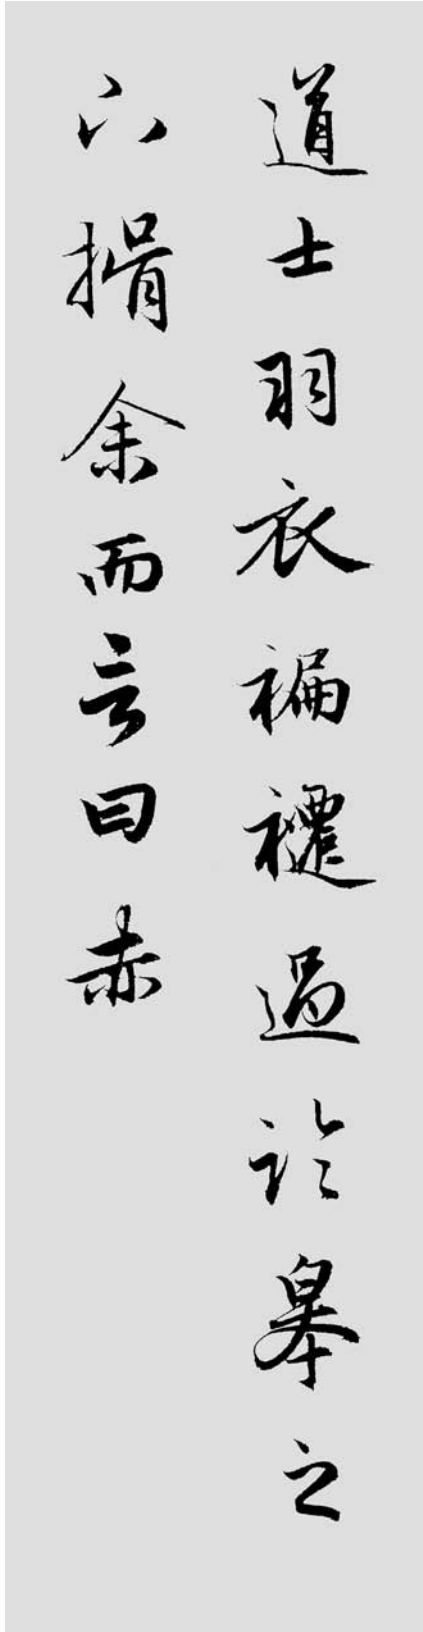 道士羽衣褊褼過臨皋之
下揖余而言曰赤